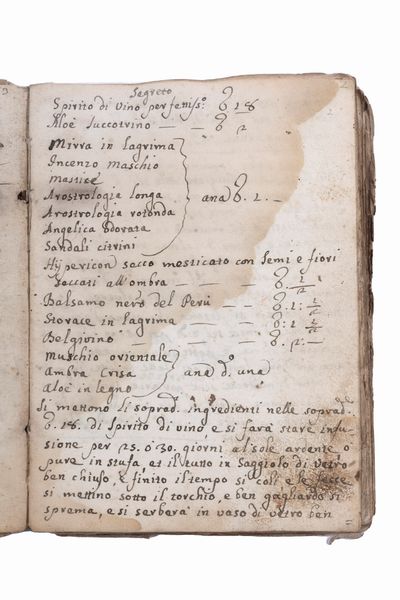 Segreto
Spirito di vino perfettiss.o ℥ 18
Aloè Succotrino — — ℥ 2
Mirra in lagrima
Incenzo Maschio
Mastice
Arostrologia longa
ana ℥. 1. —
Arostrologia rotonda
Angelica odorata
Sandali citrini
Hypericon secco mesticato con semi e fiori
Seccati all'ombra — — — ℥. 1/2
Balsamo nero del Perù — — ℥. 1: 1/2
Storace in lagrima — — ℥: 1 1/2
Belgivino — — — ℥. 2: —
Muschio orientale
Ambra Grisa
ana d.o una
Aloè in legno
Si mettono li soprad. ingredienti nelle soprad.de
℥. 18. di Spirito di vino e si farà stare infu-
sione per 25. ò 30. giorni al sole ardente o
pure in stufa, et il tutto in Saggiolo di vetro
ben chiuso, e finito il tempo si coli e le fecce
si mettino sotto il torchio, e ben gagliardo si
sprema, e si serberà in vaso di vetro ben